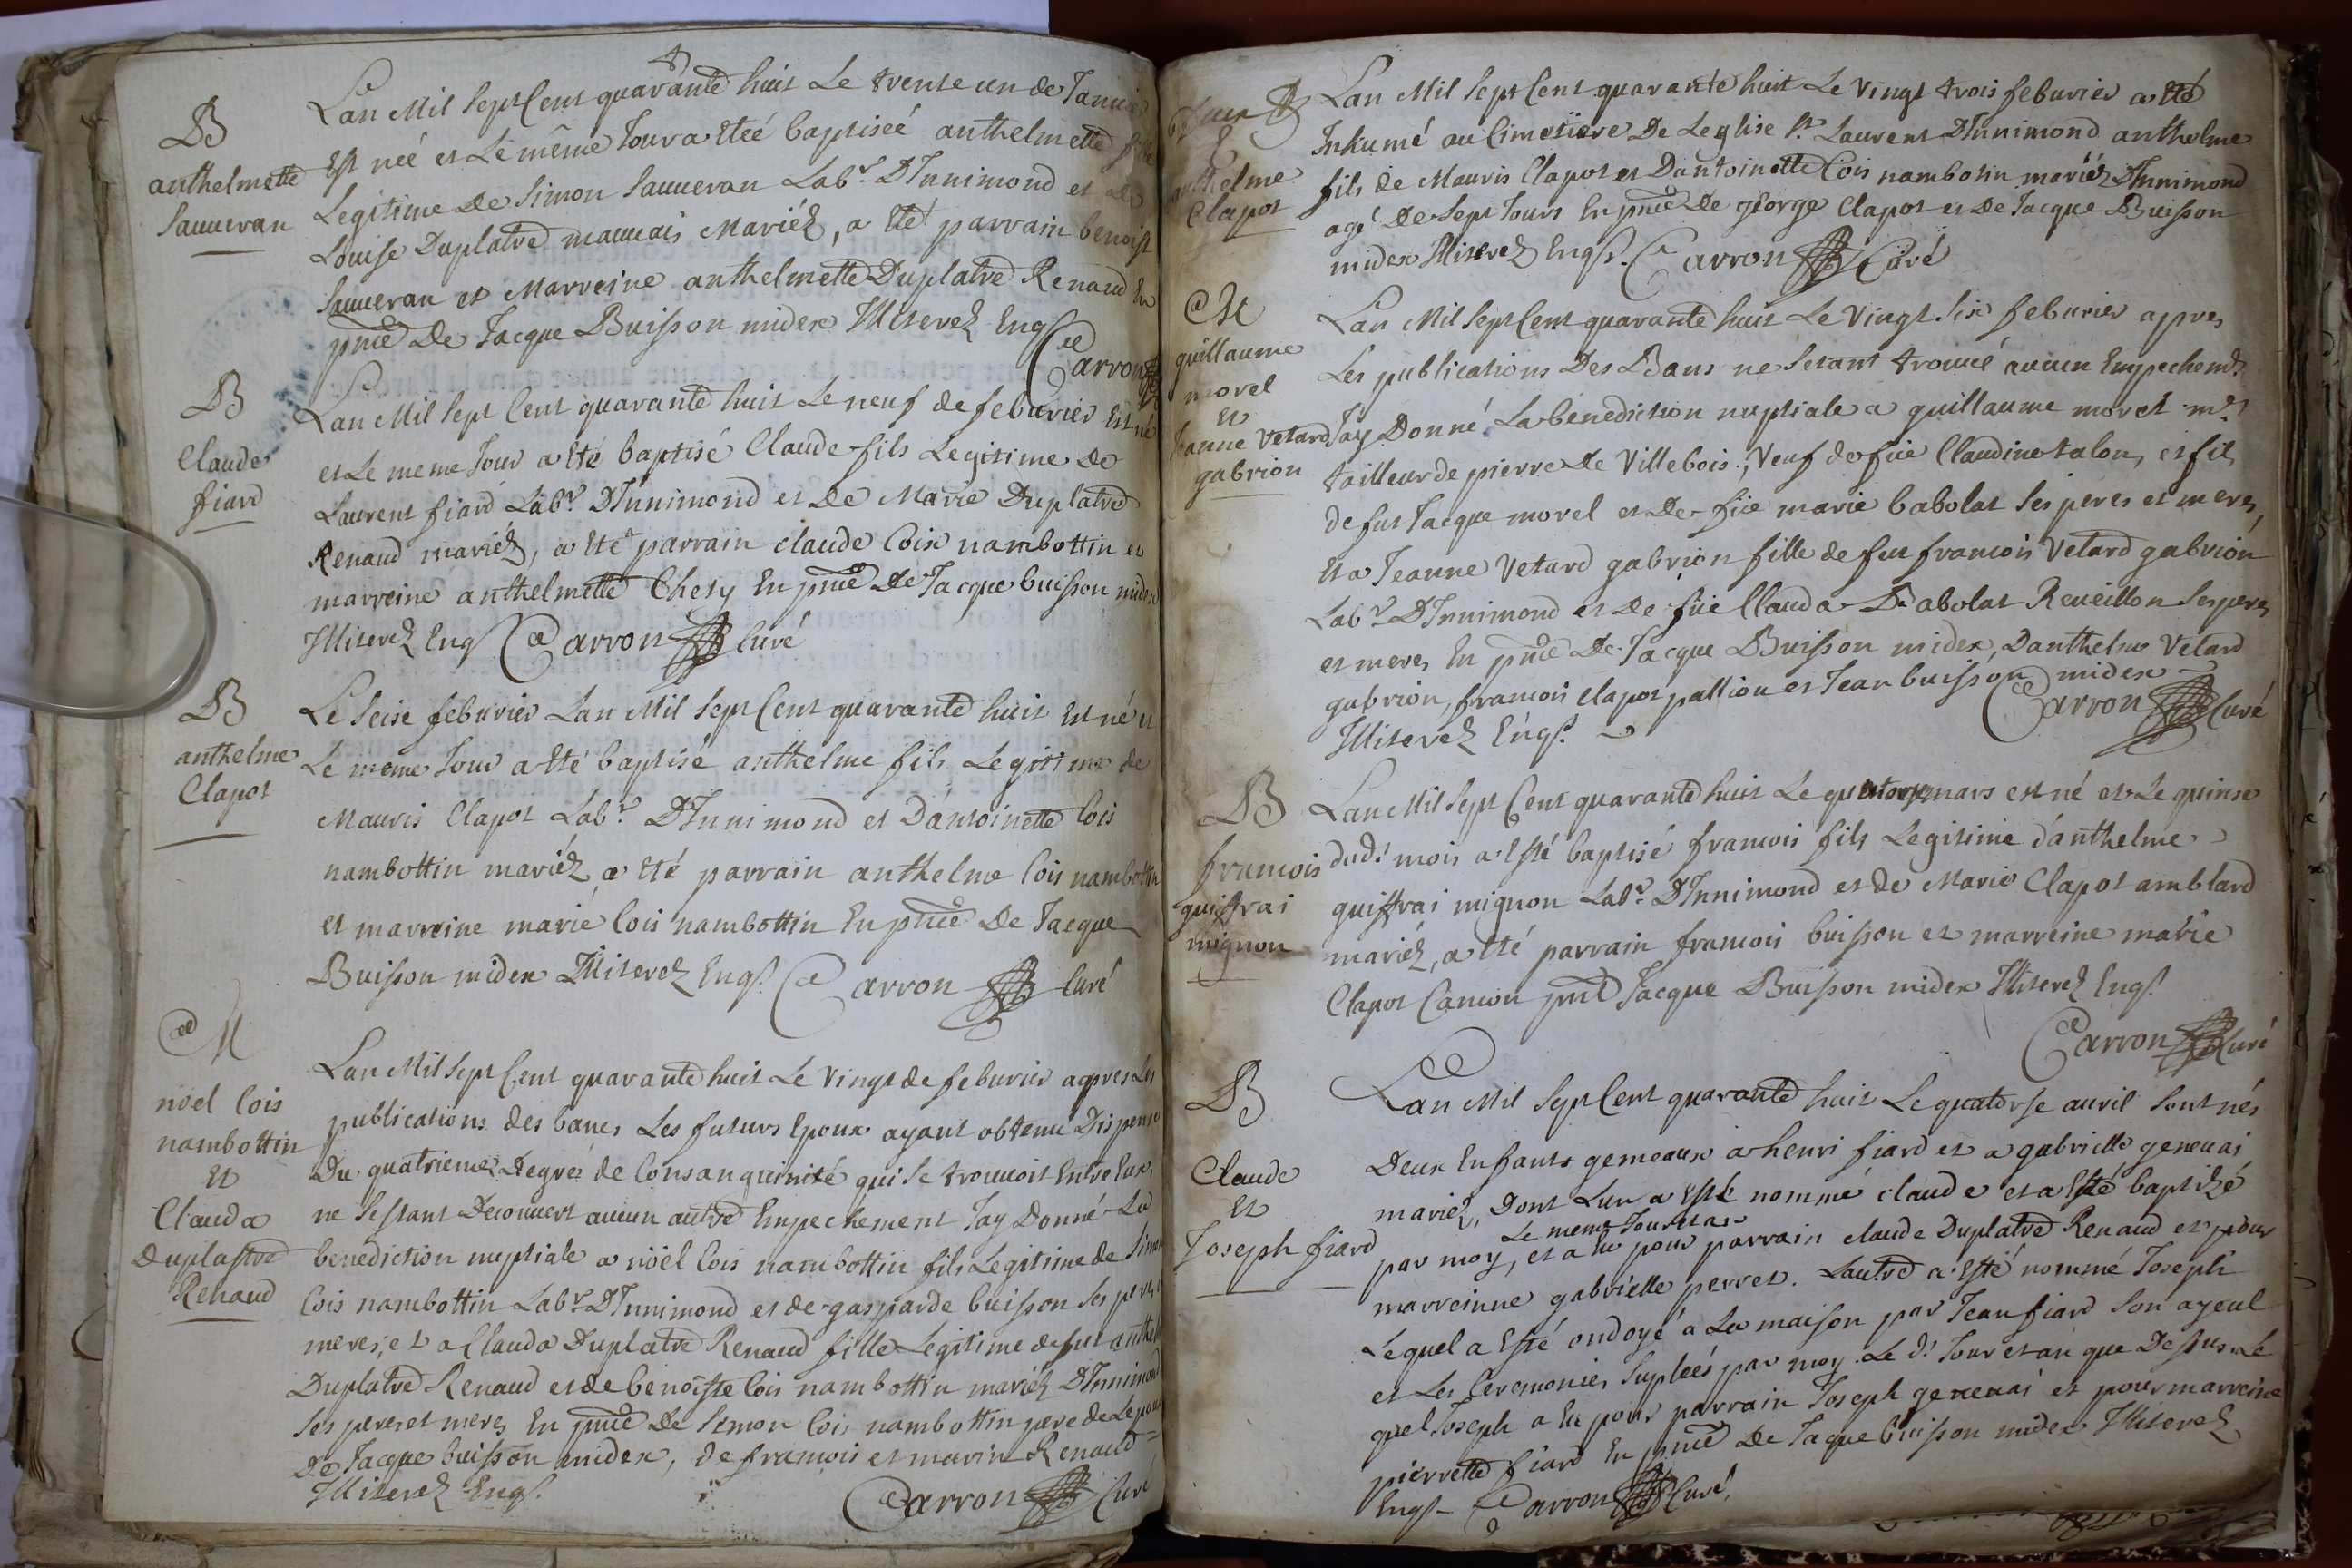 4
B
anthelmette
Sauveran
Lan Mil Sept Cent quarante huit Le trente un de Janvier
Est néé et Le même Jour a Eteé baptiseé anthelmette fille
Legitime De Simon Sauveran Lab.r D'Innimond et De
Louise Duplatre mauvais Mariéz, a Eté parrain benoist
Sauveran et Marreine anthelmette Duplatre Renaud En
pnce De Jacque Buisson midex Illiterez Enqs
Carron
B
Claude
fiard
Lan Mil Sept Cent quarante huit Le neuf de feburier Est né
et Le meme Jour a Eté baptisé Claude fils Legitime De
Laurent fiard Lab.r D'Innimond et De Marie Duplatre
Renaud mariéz, a Eté parrain claude Cois nambottin et
marreine anthelmette Chety En pnce De Jacque buisson midex
Illiterez Enqs Carron Curé
B
anthelme
Clapot
Le Seise feburier Lan Mil Sept Cent quarante huit Est né et
Le meme Jour a Eté baptisé anthelme fils Legitime de
Mauris Clapot Lab.r D'Innimond et D'antoinette Cois
nambottin mariéz a Eté parrain anthelme Cois nambottin
et marreine marie Cois nambottin En pnce De Jacque
Buisson midex Illiterez Enqs. Carron Curé
M
nöel Cois
nambottin
Et
Clauda
Duplastre
Renaud
Lan Mil Sept Cent quarante huit Le Vingt de feburier apres Les
publications des bancs Les futurs Epoux ayant obtenu Dispense
Du quatrieme Degrés de Consanguinité qui Se trouvoit Entre Eux,
ne Sestant Decouvert aucun autre Empechement Jay Donné La
benediction nuptiale a nöel Cois nambottin fils Legitime de Simon
Cois nambottin Lab.r D'Innimond et de gasparde buisson Ses peres
meres, et a Clauda Duplatre Renaud fille Legitime de fut
Duplatre Renaud et de benoiste Cois nambottin mariéz D'Innimond
Ses peres et meres En pnce De Simon Cois nambottin pere de Lepoux
De Jacque buisson midex, de francois et marin Renaud
Illiterez Enqs.
Carron Curé
anthelme
Clapot
Lan Mil Sept Cent quarante huit Le Vingt trois feburier a Eté
Inhumé au Cimetiere De Leglise St. Laurent D'Innimond anthelme
fils de Mauris Clapot et Dantoinette Cois nambotin mariéz D'Innimond
agé De Sept Jours En pnce De george Clapot et De Jacque Buisson
midex Illiterez Enqs. Carron Curé
M
guillaume
morel
Et
Jeanne Vetard
gabrion
Lan Mil Sept Cent quarante huit Le Vingt Six feburier apres
Les publications Des Bans ne Setant trouvé aucun Empechemt.
Jay Donné La benediction nuptiale a guillaume morel m.e
tailleur de pierre De Villebois, Veuf de füe Claudine talon, et fils
de fut Jacque morel et De füe marie babolat Ses peres et meres,
Et a Jeanne Vetard gabrion fille de fut francois Vetard gabrion
Lab.r D'Innimond et De füe Clauda Babolat Reveillon Ses peres
et meres En pnce De Jacque Buisson midex, Danthelme Vetard
gabrion, francois Clapot pallion et Jean buisson midex
Illiterez Enqs. Carron Curé
B
francois
guiffrai
mignon
Lan Mil Sept Cent quarante huit Le quatorze mars est né et Le quinse
dud.t mois a Esté baptisé francois fils Legitime d'anthelme
guiffrai mignon Lab.r D'Innimond et de Marie Clapot amblard
mariéz, a Eté parrain francois buisson et marreine marie
Clapot Canion pnt Jacque Buisson midex Illiterez Enqs.
Carron Curé
B
Claude
Et
Joseph fiard
Lan Mil Sept Cent quarante huit Le quatorse avril Sont nés
Deux Enfants gemeaux a henri fiard et a gabrielle genevai
mariéz, Dont Lun a Esté nommé claude et a Esté baptizé
Le meme Jour et an
par moy, et a Eu pour parrain claude Duplatre Renaud et pour
marreinne gabrielle perret. Lautre a Esté nommé Joseph
Lequel a Esté ondoyé a La maison par Jean fiard Son ayeul
et Les Ceremonies Supleés par moy. Le d.t Jour et an que Dessus. Le
quel Joseph a Eu pour parrain Joseph genevai et pour marreine
pierrette fiard En pnce De Jaque buisson midex Illiterez
Enqs. Carron Curé